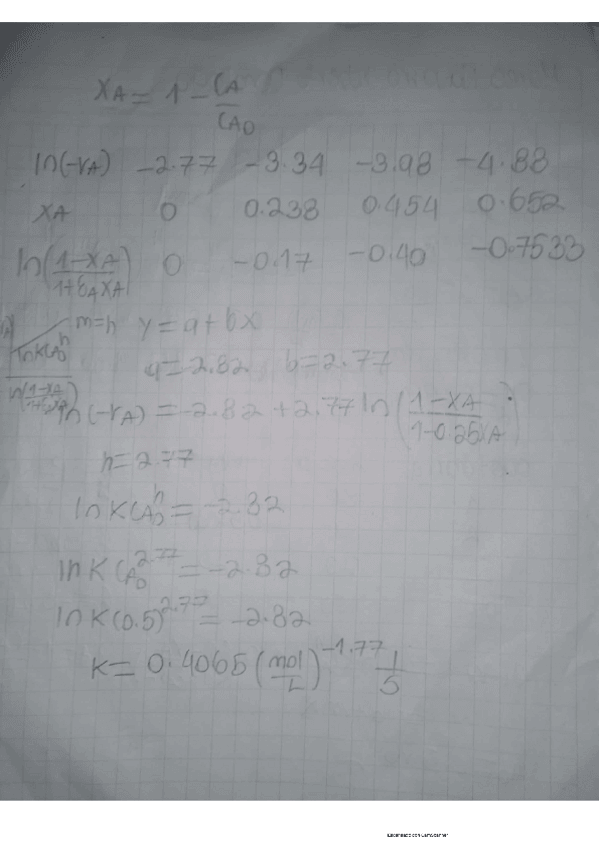 XA = 1 - CA/CA0
ln(-rA) -2.77 -3.34 -3.98 -4.88
XA 0 0.238 0.454 0.652
ln((1-XA)/(1+εAXA)) 0 -0.17 -0.40 -0.7533
m=n y = a+bx
lnKCA0^n
a=-2.82 b=2.77
ln(-rA) = -2.82 + 2.77 ln((1-XA)/(1-0.25XA))
n=2.77
ln KCA0^n = -2.82
ln KCA0^2.77 = -2.82
ln K(0.5)^2.77 = -2.82
K= 0.4065 (mol/L)^-1.77 1/s